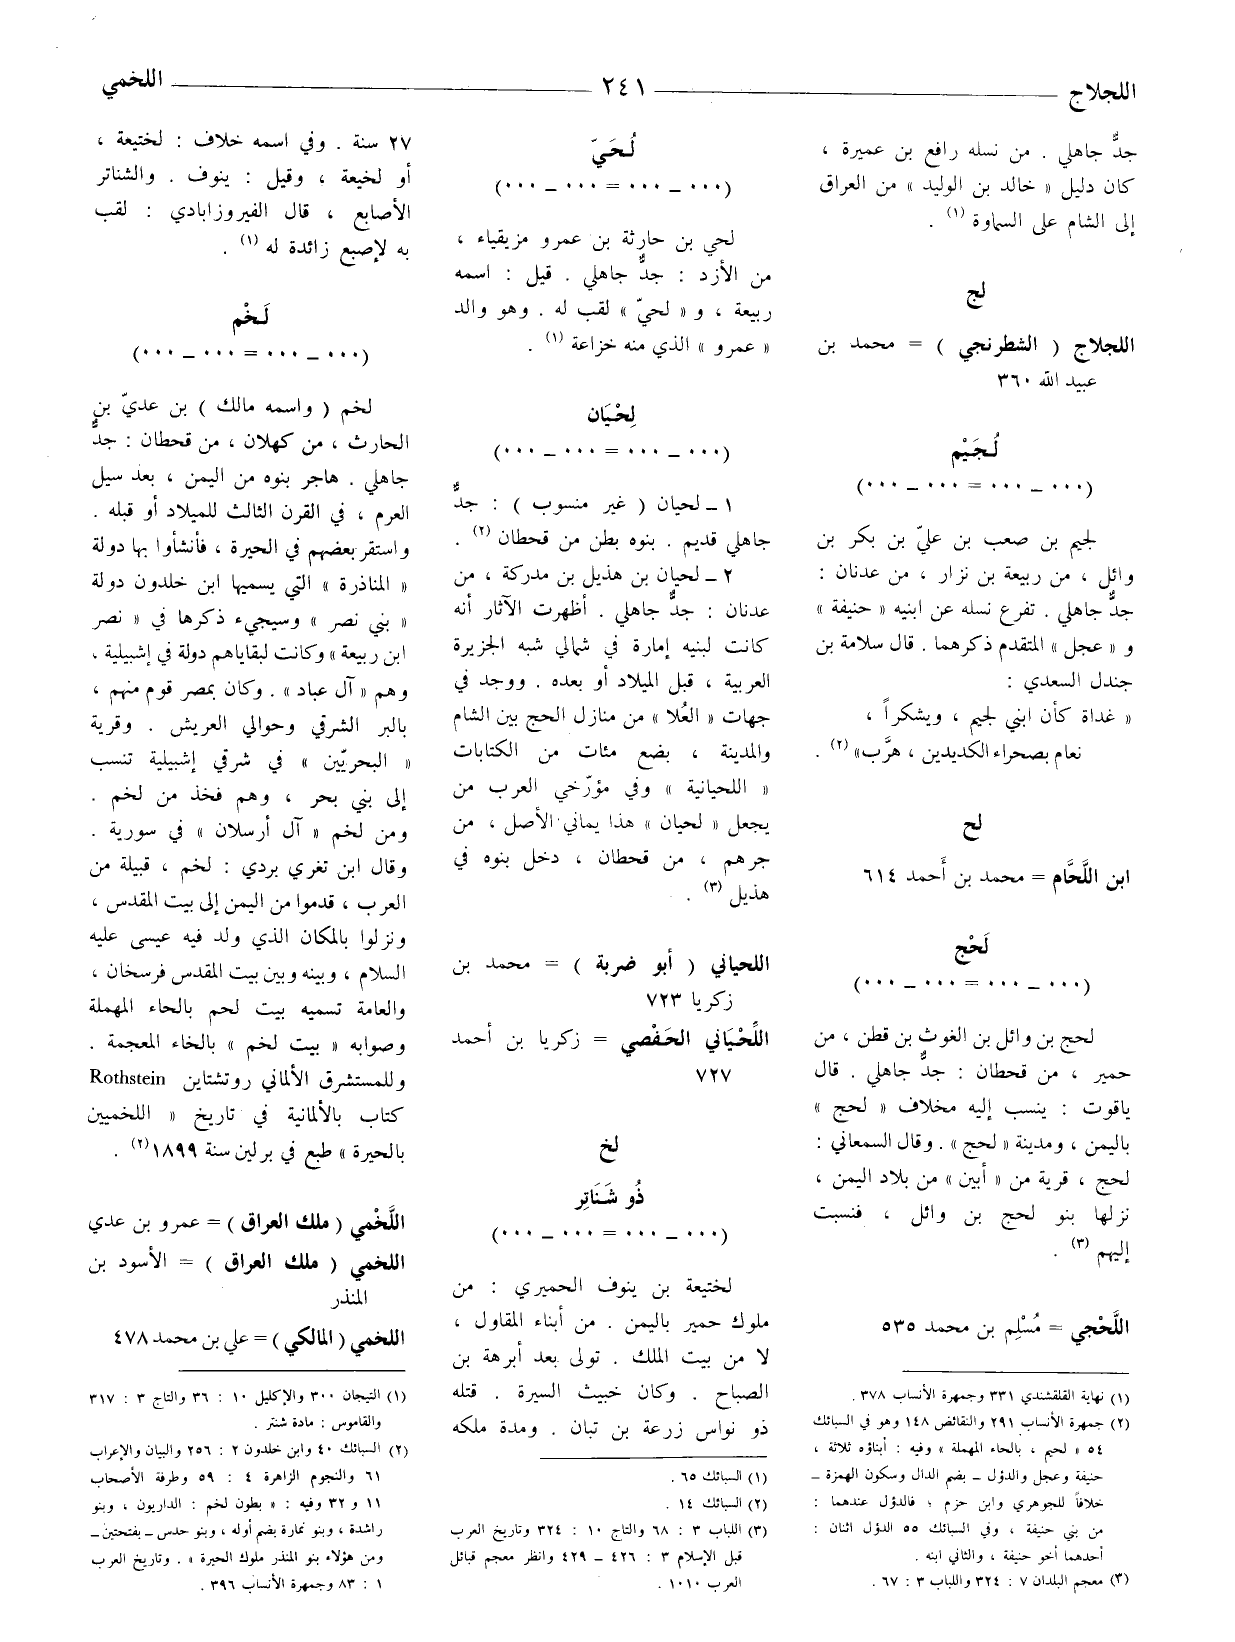 اللجلاج ٢٤١ اللخمي
جدٌّ جاهلي . من نسله رافع بن عميرة ،
كان دليل « خالد بن الوليد » من العراق
إلى الشام على السماوة (١) .
لج
اللجلاج ( الشطرنجي ) = محمد بن
عبيد الله ٣٦٠
لُجَيْم
(٠٠٠ ــ ٠٠٠ = ٠٠٠ ــ ٠٠٠)
لجيم بن صعب بن عليّ بن بكر بن
وائل ، من ربيعة بن نزار ، من عدنان :
جدٌّ جاهلي . تفرع نسله عن ابنيه « حنيفة »
و « عجل » المتقدم ذكرهما . قال سلامة بن
جندل السعدي :
« غداة كأن ابني لجيم ، ويشكراً ،
نعام بصحراء الكديدين ، هرَّب» (٢) .
لح
ابن اللَّحَّام = محمد بن أَحمد ٦١٤
لَحْج
(٠٠٠ ــ ٠٠٠ = ٠٠٠ ــ ٠٠٠)
لحج بن وائل بن الغوث بن قطن ، من
حمير ، من قحطان : جدٌّ جاهلي . قال
ياقوت : ينسب إليه مخلاف « لحج »
باليمن ، ومدينة « لحج » . وقال السمعاني :
لحج ، قرية من « أبين » من بلاد اليمن ،
نزلها بنو لحج بن وائل ، فنسبت
إليهم (٣) .
اللَّحْجي = مُسْلِم بن محمد ٥٣٥
(١) نهاية القلقشندي ٣٣١ وجمهرة الأنساب ٣٧٨ .
(٢) جمهرة الأنساب ٢٩١ والنقائض ١٤٨ وهو في السبائك
٥٤ « لحيم ، بالحاء المهملة » وفيه : أبناؤه ثلاثة ،
حنيفة وعجل والدؤل ــ بضم الدال وسكون الهمزة ــ
خلافاً للجوهري وابن حزم ؛ فالدؤل عندهما :
من بني حنيفة ، وفي السبائك ٥٥ الدؤل اثنان :
أحدهما أخو حنيفة ، والثاني ابنه .
(٣) معجم البلدان ٧ : ٣٢٤ واللباب ٣ : ٦٧ .
لُحَيّ
(٠٠٠ ــ ٠٠٠ = ٠٠٠ ــ ٠٠٠)
لحي بن حارثة بن عمرو مزيقياء ،
من الأزد : جدٌّ جاهلي . قيل : اسمه
ربيعة ، و « لحيّ » لقب له . وهو والد
« عمرو » الذي منه خزاعة (١) .
لِحْيَان
(٠٠٠ ــ ٠٠٠ = ٠٠٠ ــ ٠٠٠)
١ ــ لحيان ( غير منسوب ) : جدٌّ
جاهلي قديم . بنوه بطن من قحطان (٢) .
٢ ــ لحيان بن هذيل بن مدركة ، من
عدنان : جدٌّ جاهلي . أظهرت الآثار أنه
كانت لبنيه إمارة في شمالي شبه الجزيرة
العربية ، قبل الميلاد أو بعده . ووجد في
جهات « العُلا » من منازل الحج بين الشام
والمدينة ، بضع مئات من الكتابات
« اللحيانية » وفي مؤرّخي العرب من
يجعل « لحيان » هذا يماني الأصل ، من
جرهم ، من قحطان ، دخل بنوه في
هذيل (٣) .
اللحياني ( أبو ضربة ) = محمد بن
زكريا ٧٢٣
اللِّحْيَاني الحَفْصي = زكريا بن أحمد
٧٢٧
لخ
ذُو شَنَاتِر
(٠٠٠ ــ ٠٠٠ = ٠٠٠ ــ ٠٠٠)
لختيعة بن ينوف الحميري : من
ملوك حمير باليمن . من أبناء المقاول ،
لا من بيت الملك . تولى بعد أبرهة بن
الصباح . وكان خبيث السيرة . قتله
ذو نواس زرعة بن تبان . ومدة ملكه
(١) السبائك ٦٥ .
(٢) السبائك ١٤ .
(٣) اللباب ٣ : ٦٨ والتاج ١٠ : ٣٢٤ وتاريخ العرب
قبل الإسلام ٣ : ٤٢٦ ــ ٤٢٩ وانظر معجم قبائل
العرب ١٠١٠ .
٢٧ سنة . وفي اسمه خلاف : لختيعة ،
أو لخيعة ، وقيل : ينوف . والشناتر
الأصابع ، قال الفيروزابادي : لقب
به لإصبع زائدة له (١) .
لَخْم
(٠٠٠ ــ ٠٠٠ = ٠٠٠ ــ ٠٠٠)
لخم ( واسمه مالك ) بن عديّ بن
الحارث ، من كهلان ، من قحطان : جدٌّ
جاهلي . هاجر بنوه من اليمن ، بعد سيل
العرم ، في القرن الثالث للميلاد أو قبله .
واستقر بعضهم في الحيرة ، فأنشأوا بها دولة
« المناذرة » التي يسميها ابن خلدون دولة
« بني نصر » وسيجيء ذكرها في « نصر
ابن ربيعة » وكانت لبقاياهم دولة في إشبيلية ،
وهم « آل عباد » . وكان بمصر قوم منهم ،
بالبر الشرقي وحوالي العريش . وقرية
« البحريّين » في شرقي إشبيلية تنسب
إلى بني بحر ، وهم فخذ من لخم .
ومن لخم « آل أرسلان » في سورية .
وقال ابن تغري بردي : لخم ، قبيلة من
العرب ، قدموا من اليمن إلى بيت المقدس ،
ونزلوا بالمكان الذي ولد فيه عيسى عليه
السلام ، وبينه وبين بيت المقدس فرسخان ،
والعامة تسميه بيت لحم بالحاء المهملة
وصوابه « بيت لخم » بالخاء المعجمة .
وللمستشرق الألماني روتشتاين Rothstein
كتاب بالألمانية في تاريخ « اللخميين
بالحيرة » طبع في برلين سنة ١٨٩٩ (٢) .
اللَّخْمي ( ملك العراق ) = عمرو بن عدي
اللخمي ( ملك العراق ) = الأسود بن
المنذر
اللخمي ( المالكي ) = علي بن محمد ٤٧٨
(١) التيجان ٣٠٠ والإكليل ١٠ : ٣٦ والتاج ٣ : ٣١٧
والقاموس : مادة شنتر .
(٢) السبائك ٤٠ وابن خلدون ٢ : ٢٥٦ والبيان والإعراب
٦١ والنجوم الزاهرة ٤ : ٥٩ وطرفة الأصحاب
١١ و ٣٢ وفيه : « بطون لخم : الداريون ، وبنو
راشدة ، وبنو نمارة بضم أوله ، وبنو حدس ــ بفتحتين ــ
ومن هؤلاء بنو المنذر ملوك الحيرة » . وتاريخ العرب
١ : ٨٣ وجمهرة الأنساب ٣٩٦ .